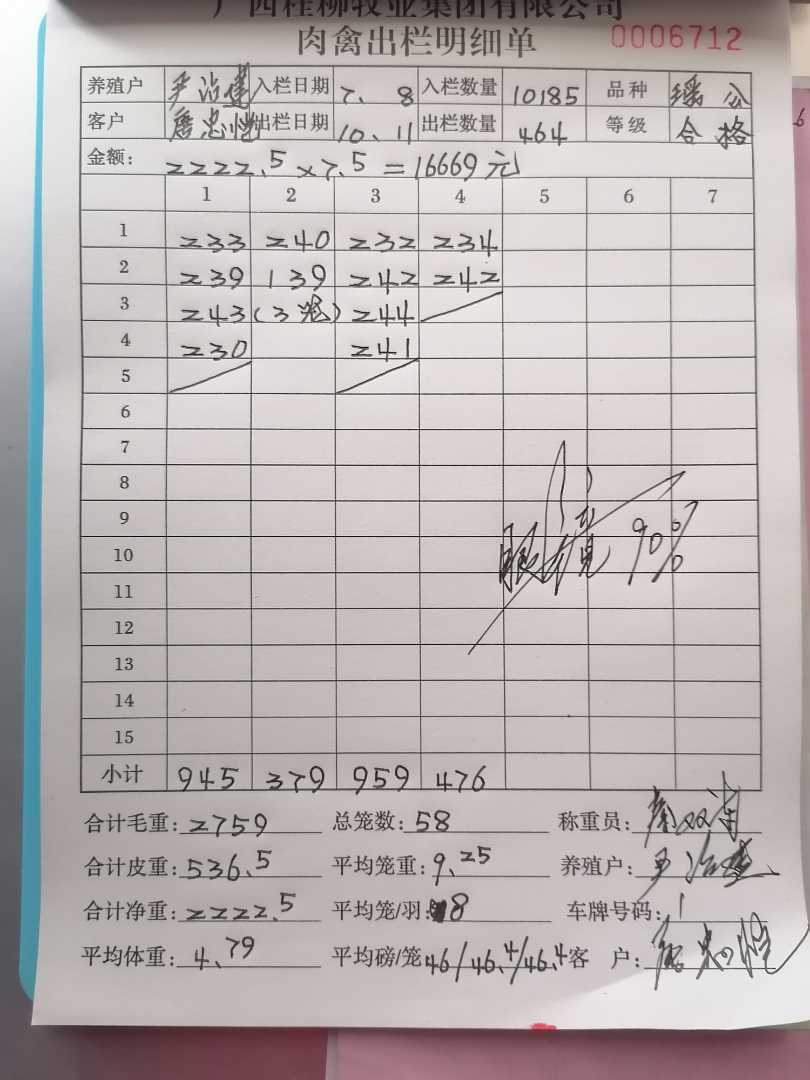 广西桂柳牧业集团有限公司
肉禽出栏明细单 0006712
养殖户 入栏日期 7、8 入栏数量 10185 品种 瑶公
客户 出栏日期 10、11 出栏数量 464 等级 合格
金额: 2222.5×7.5=16669元
1 2 3 4 5 6 7
1 233 240 232 234
2 239 139 242 242
3 243 (3笼) 244
4 230 241
5
6
7
8
9
10
11
12
13
14
15
90%
小计 945 379 959 476
合计毛重: 2759 总笼数: 58 称重员:
合计皮重: 536.5 平均笼重: 9.25 养殖户:
合计净重: 2222.5 平均笼/羽: 8 车牌号码: 1
平均体重: 4.79 平均磅/笼 46/46.4/46.4 客户: